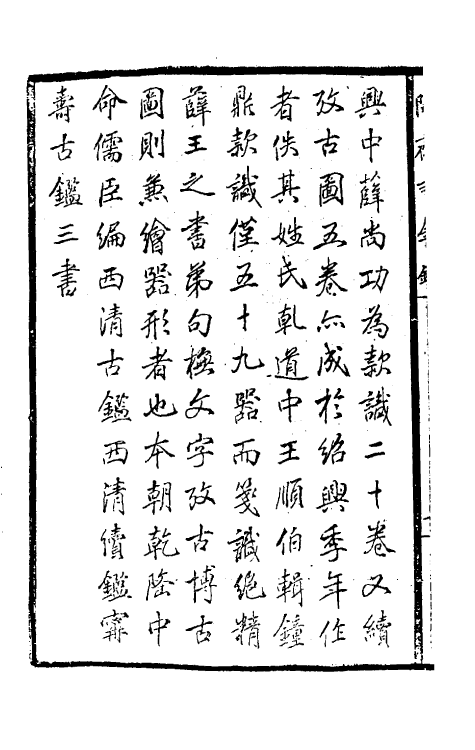 興中薛尚功為款識二十卷又續
攷古圖五卷亦成於紹興季年作
者佚其姓氏乹道中王順伯輯鐘
鼎款識僅五十九器而箋識絕精
薛王之書苐句橅文字攷古博古
圖則兼繪器形者也本朝乾隆中
命儒臣編西清古鑑西清續鑑甯
壽古鑑三書